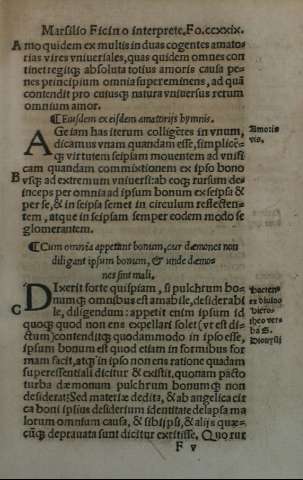 Marsilio Ficino interprete, Fo. ccxxix.
A mo quidem ex multis in duas cogentes amato-
rias vires vniuersales, quas quidem omnes con
tinet regitq̃ absoluta totius amoris causa pe-
nes principium omnia supereminens, ad quã
contendit pro cuiusq̃ natura vniuersus rerum
omnium amor.
¶ Eiusdem ex eisdem amatorijs hymnis.
AGe iam has iterum colligẽtes in vnum,
dicamus vnam quandam esse, simplicẽ-
q̃ virtutem seipsam mouentem ad vnifi
cam quandam commixtionem ex ipso bono
B vsq̃ ad extremum vniuersi: ab eoq̃ rursum de
inceps per omnia ad ipsum bonum ex seipsa &
per se, & in seipsa semet in circulum reflecten-
tem, atque in seipsam semper eodem modo se
glomerantem.
Amoris
vis.
¶ Cum omnia appetant bonum, cur dæmones non
diligant ipsum bonum, & unde dæmo-
nes sint mali.
DIxerit forte quispiam, si pulchrum bo-
numq̃ omnibus est amabile, desiderabi
C le, diligendum: appetit enim ipsum id
quoq̃ quod non ens expellari solet (vt est di-
ctum) contenditq̃ quodammodo in ipso esse,
ipsum bonum est quod etiam in formibus for
mam facit, atq̃ in ipso non ens ratione quadam
superessentiali dicitur & existit, quonam pacto
turba dæmonum pulchrum bonumq̃ non
desiderat: Sed materiæ dedita, & ab angelica cir
ca boni ipsius desiderium identitate delapsa ma
lorum omnium causa, & sibiipsi, & alijs quæ-
cũq̃ deprauata sunt dicitur extitisse. Quo rur
Hacten^9
ex diuino
Hiero-
theo ver-
ba S.
Dionysij
F v